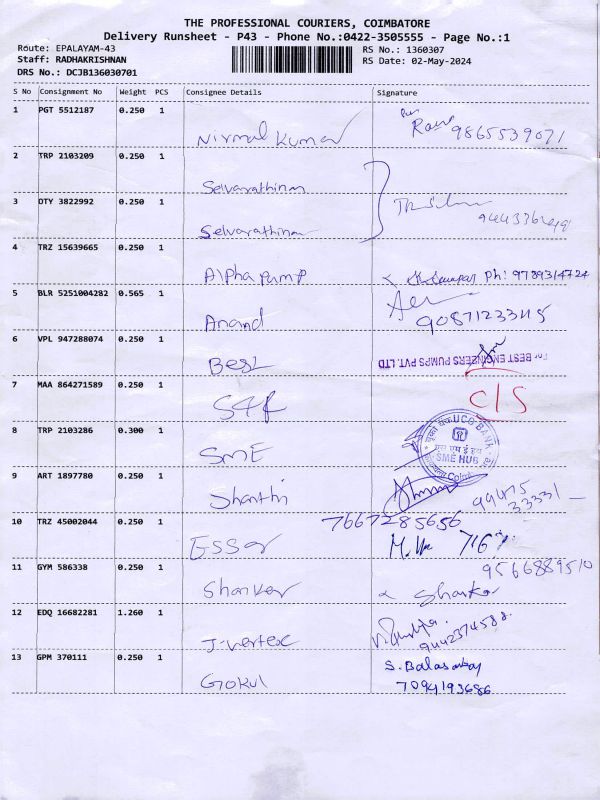 THE PROFESSIONAL COURIERS, COIMBATORE
Delivery Runsheet - P43 - Phone No.:0422-3505555 - Page No.:1
Route: EPALAYAM-43
RS No.: 1360307
Staff: RADHAKRISHNAN
RS Date: 02-May-2024
DRS No.: DCJB136030701
S No Consignment No Weight PCS Consignee Details Signature
1 PGT 5512187 0.250 1 Nirmal Kumar Ravi 9865539071
2 TRP 2103209 0.250 1 Selvarathinam
3 DTY 3822992 0.250 1 Selvarathinam
4 TRZ 15639665 0.250 1 Alpha pump Ph: 9789314724
5 BLR 5251004282 0.565 1 Anand
9087123345
6 VPL 947288074 0.250 1 Best For BEST ENGINEERS PUMPS PVT. LTD
7 MAA 864271589 0.250 1 S4f C/S
8 TRP 2103286 0.300 1 SME UCO BANK
एस एम ई हब
SME HUB
9 ART 1897780 0.250 1 Shanthi 99475
33331
7667285656
10 TRZ 45002044 0.250 1 Essar
9566889510
11 GYM 586338 0.250 1 Shanker Shanker
12 EDQ 16682281 1.260 1 J-vertex 9442374588
13 GPM 370111 0.250 1 Gokul S. Balasankay
7094193686